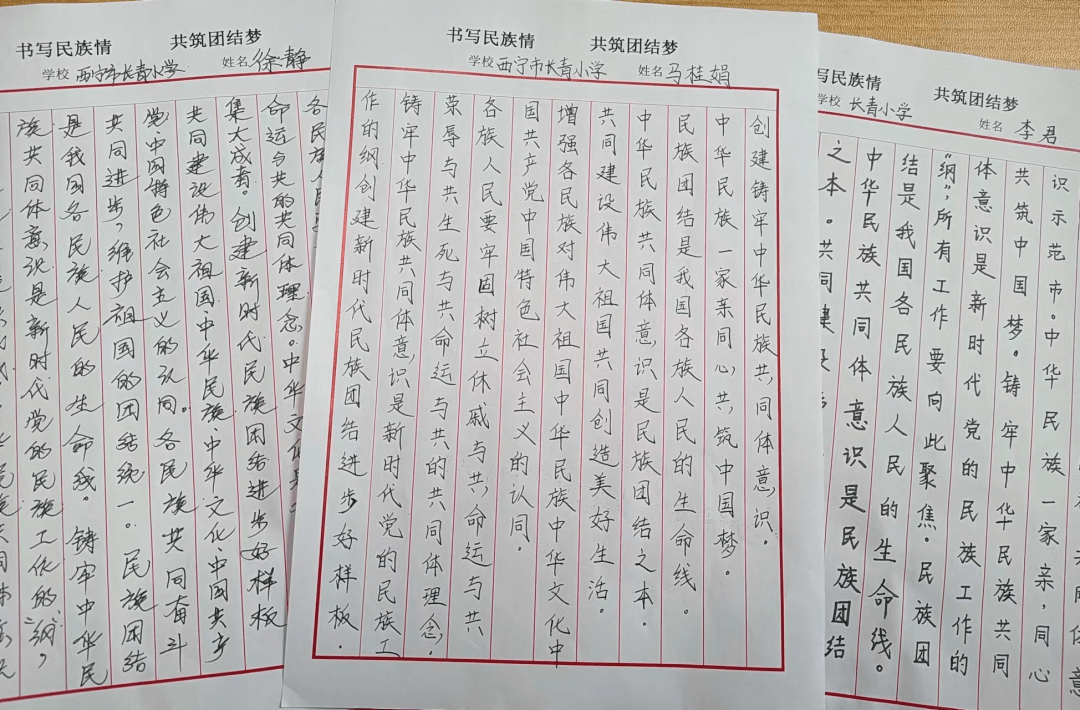 书写民族情 共筑团结梦
学校 西宁市长青小学 姓名 徐静
各民族人民
命运与共的共同体理念。中华文化是
集大成者。创建新时代民族团结进步好样板
共同建设伟大祖国、中华民族、中华文化、中国共产
党、中国特色社会主义的认同。各民族共同奋斗
共同进步,维护祖国的团结统一。民族团结
是我国各民族人民的生命线。铸牢中华民
族共同体意识是新时代党的民族工作的“纲”,
书写民族情 共筑团结梦
学校 西宁市长青小学 姓名 马桂娟
创建铸牢中华民族共同体意识。
中华民族一家亲同心共筑中国梦。
民族团结是我国各族人民的生命线。
中华民族共同体意识是民族团结之本.
共同建设伟大祖国共同创造美好生活。
增强各民族对伟大祖国中华民族中华文化中
国共产党中国特色社会主义的认同.
各族人民要牢固树立休戚与共,命运与共
荣辱与共生死与共命运与共的共同体理念,
铸牢中华民族共同体意识是新时代党的民族工
作的纲创建新时代民族团结进步好样板.
写民族情 共筑团结梦
学校 长青小学 姓名 李君
识示范市。中华民族一家亲,同心
共筑中国梦。铸牢中华民族共同
体意识是新时代党的民族工作的
“纲”,所有工作要向此聚焦。民族团
结是我国各民族人民的生命线。
中华民族共同体意识是民族团结
之本。共同建设